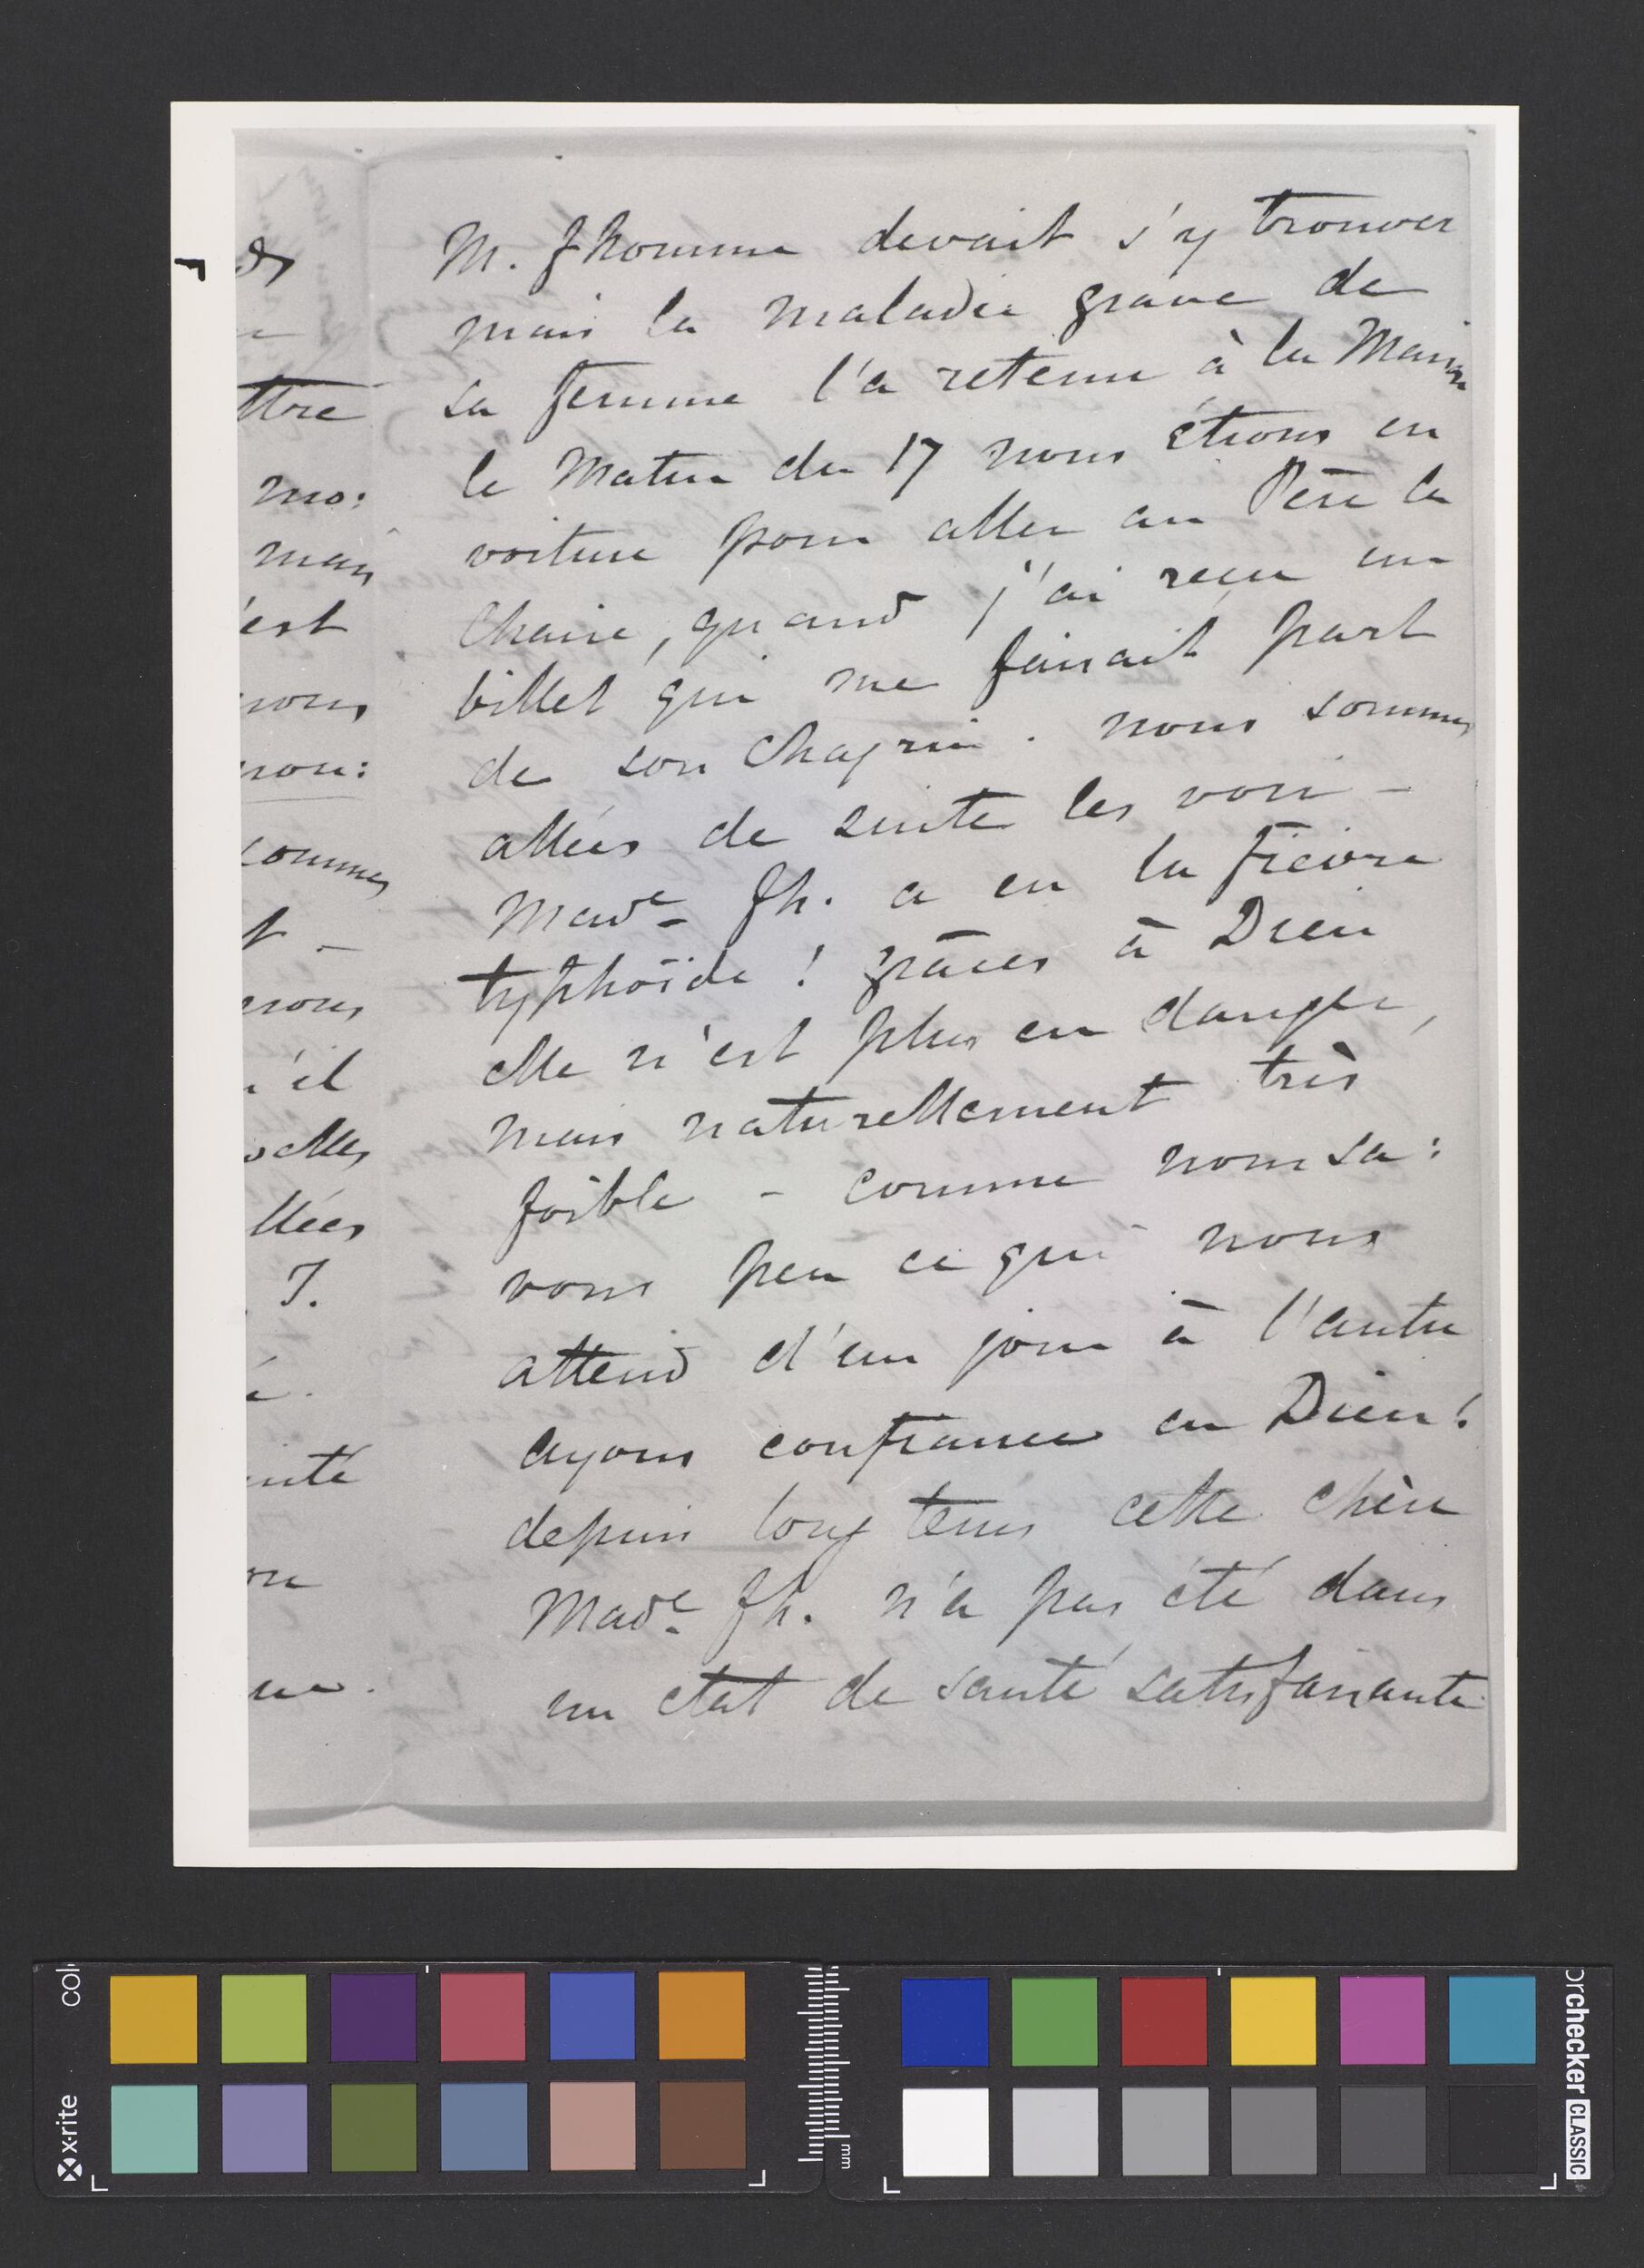 M. Jhomme devait s'y trouver
mais la maladie grave de
sa femme l'a retenu à la Maison
le Matin du 17 nous étions en
voiture pour aller au Père la
Chaise, quand j'ai reçu un
billet qui me faisait part
de son Chagrin. nous sommes
allées de suite les voir -
Made Jh. a eu la fièvre
typhoïde ! grâces à Dieu
elle n'est plus en danger,
mais naturellement très
foible - comme nous sa:
vons peu ce qui nous
attend d'un jour à l'autre
ayons confiance en Dieu!
depuis long tems cette chère
Made Jh. n'a pas été dans
un état de santé satisfaisante
ttre
mo:
mais
'est
nous
non:
sommes
t -
nous
'il
elles
llées
J.
é.
x-rite
mm
checker CLASSIC